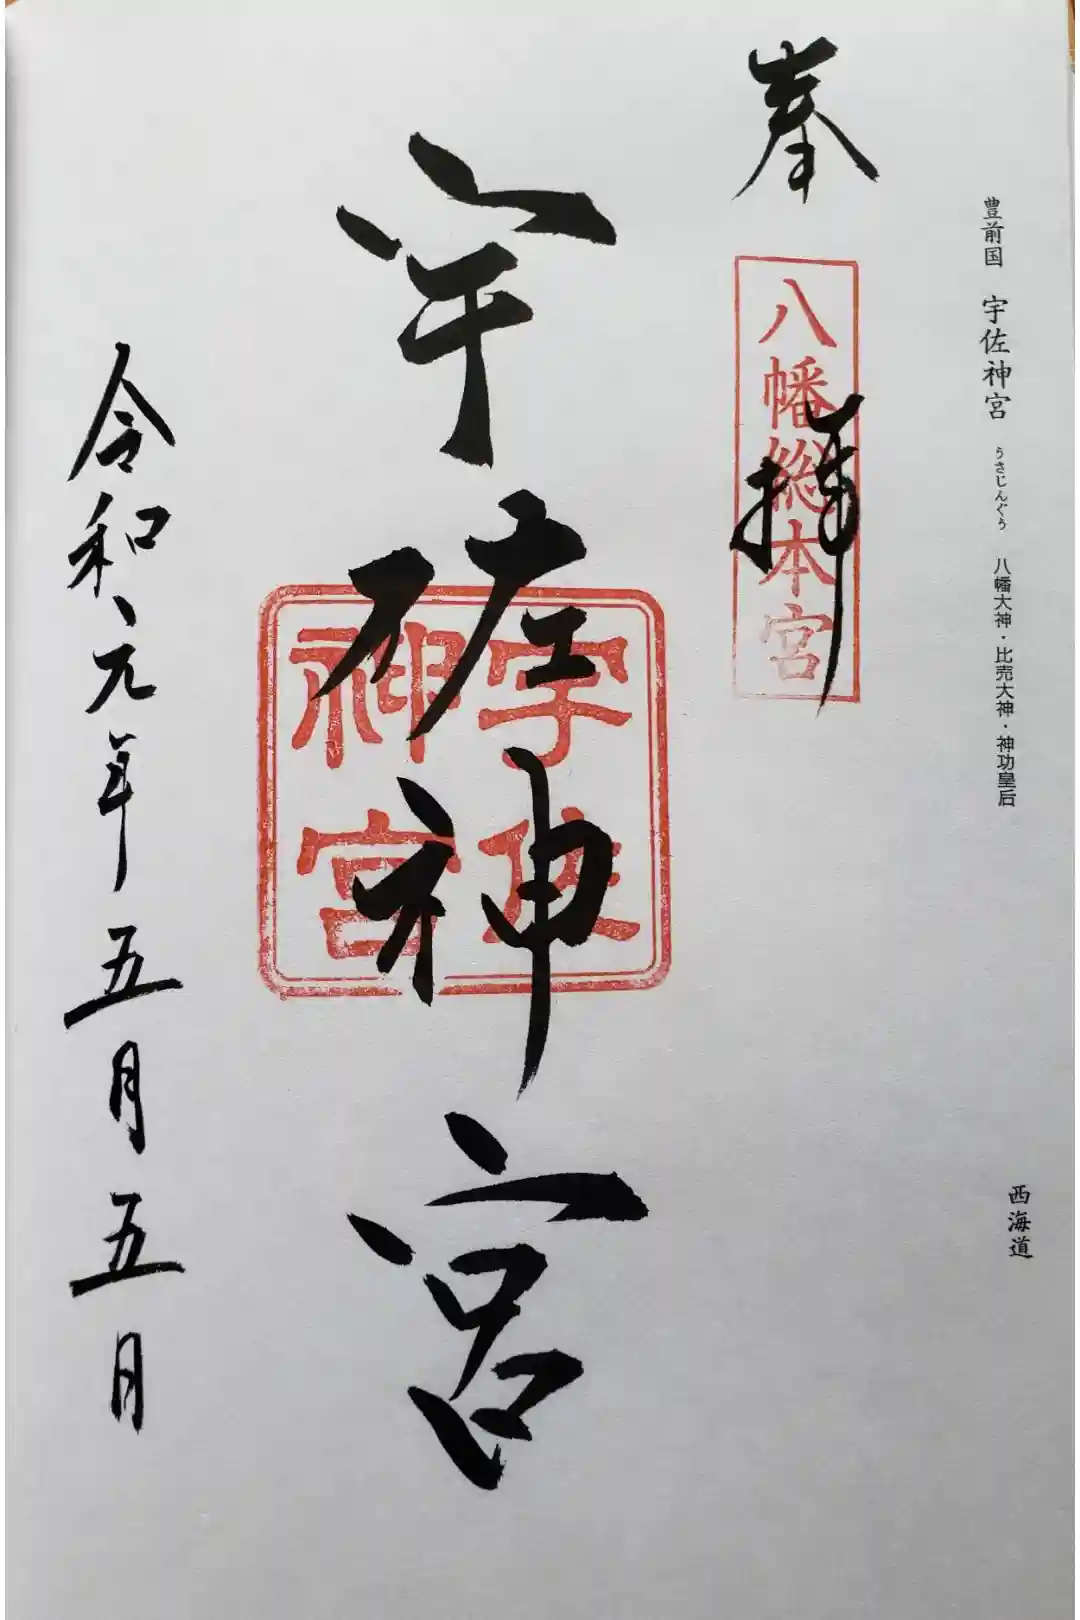 豊前国 宇佐神宮 うさじんぐう 八幡大神・比売大神・神功皇后
西海道
奉拝
八幡総本宮
宇佐神宮
宇佐
神宮
令和元年五月五日